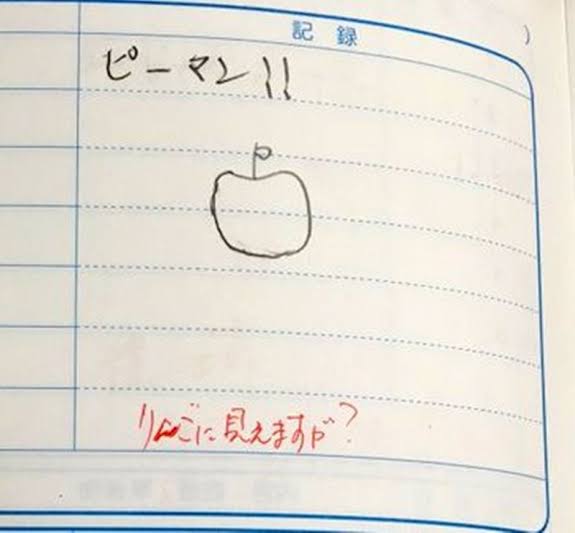 記録
)
ピーマン!!
りんごに見えますが?